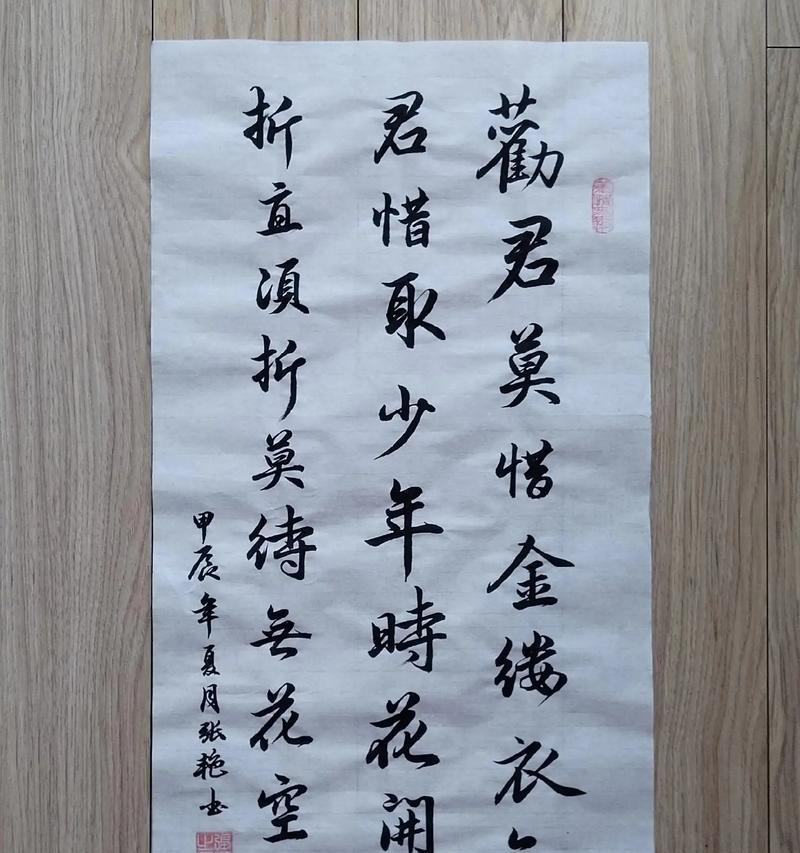 勸君莫惜金缕衣
君惜取少年時花開
折直須折莫待無花空
甲辰年夏月张艳书